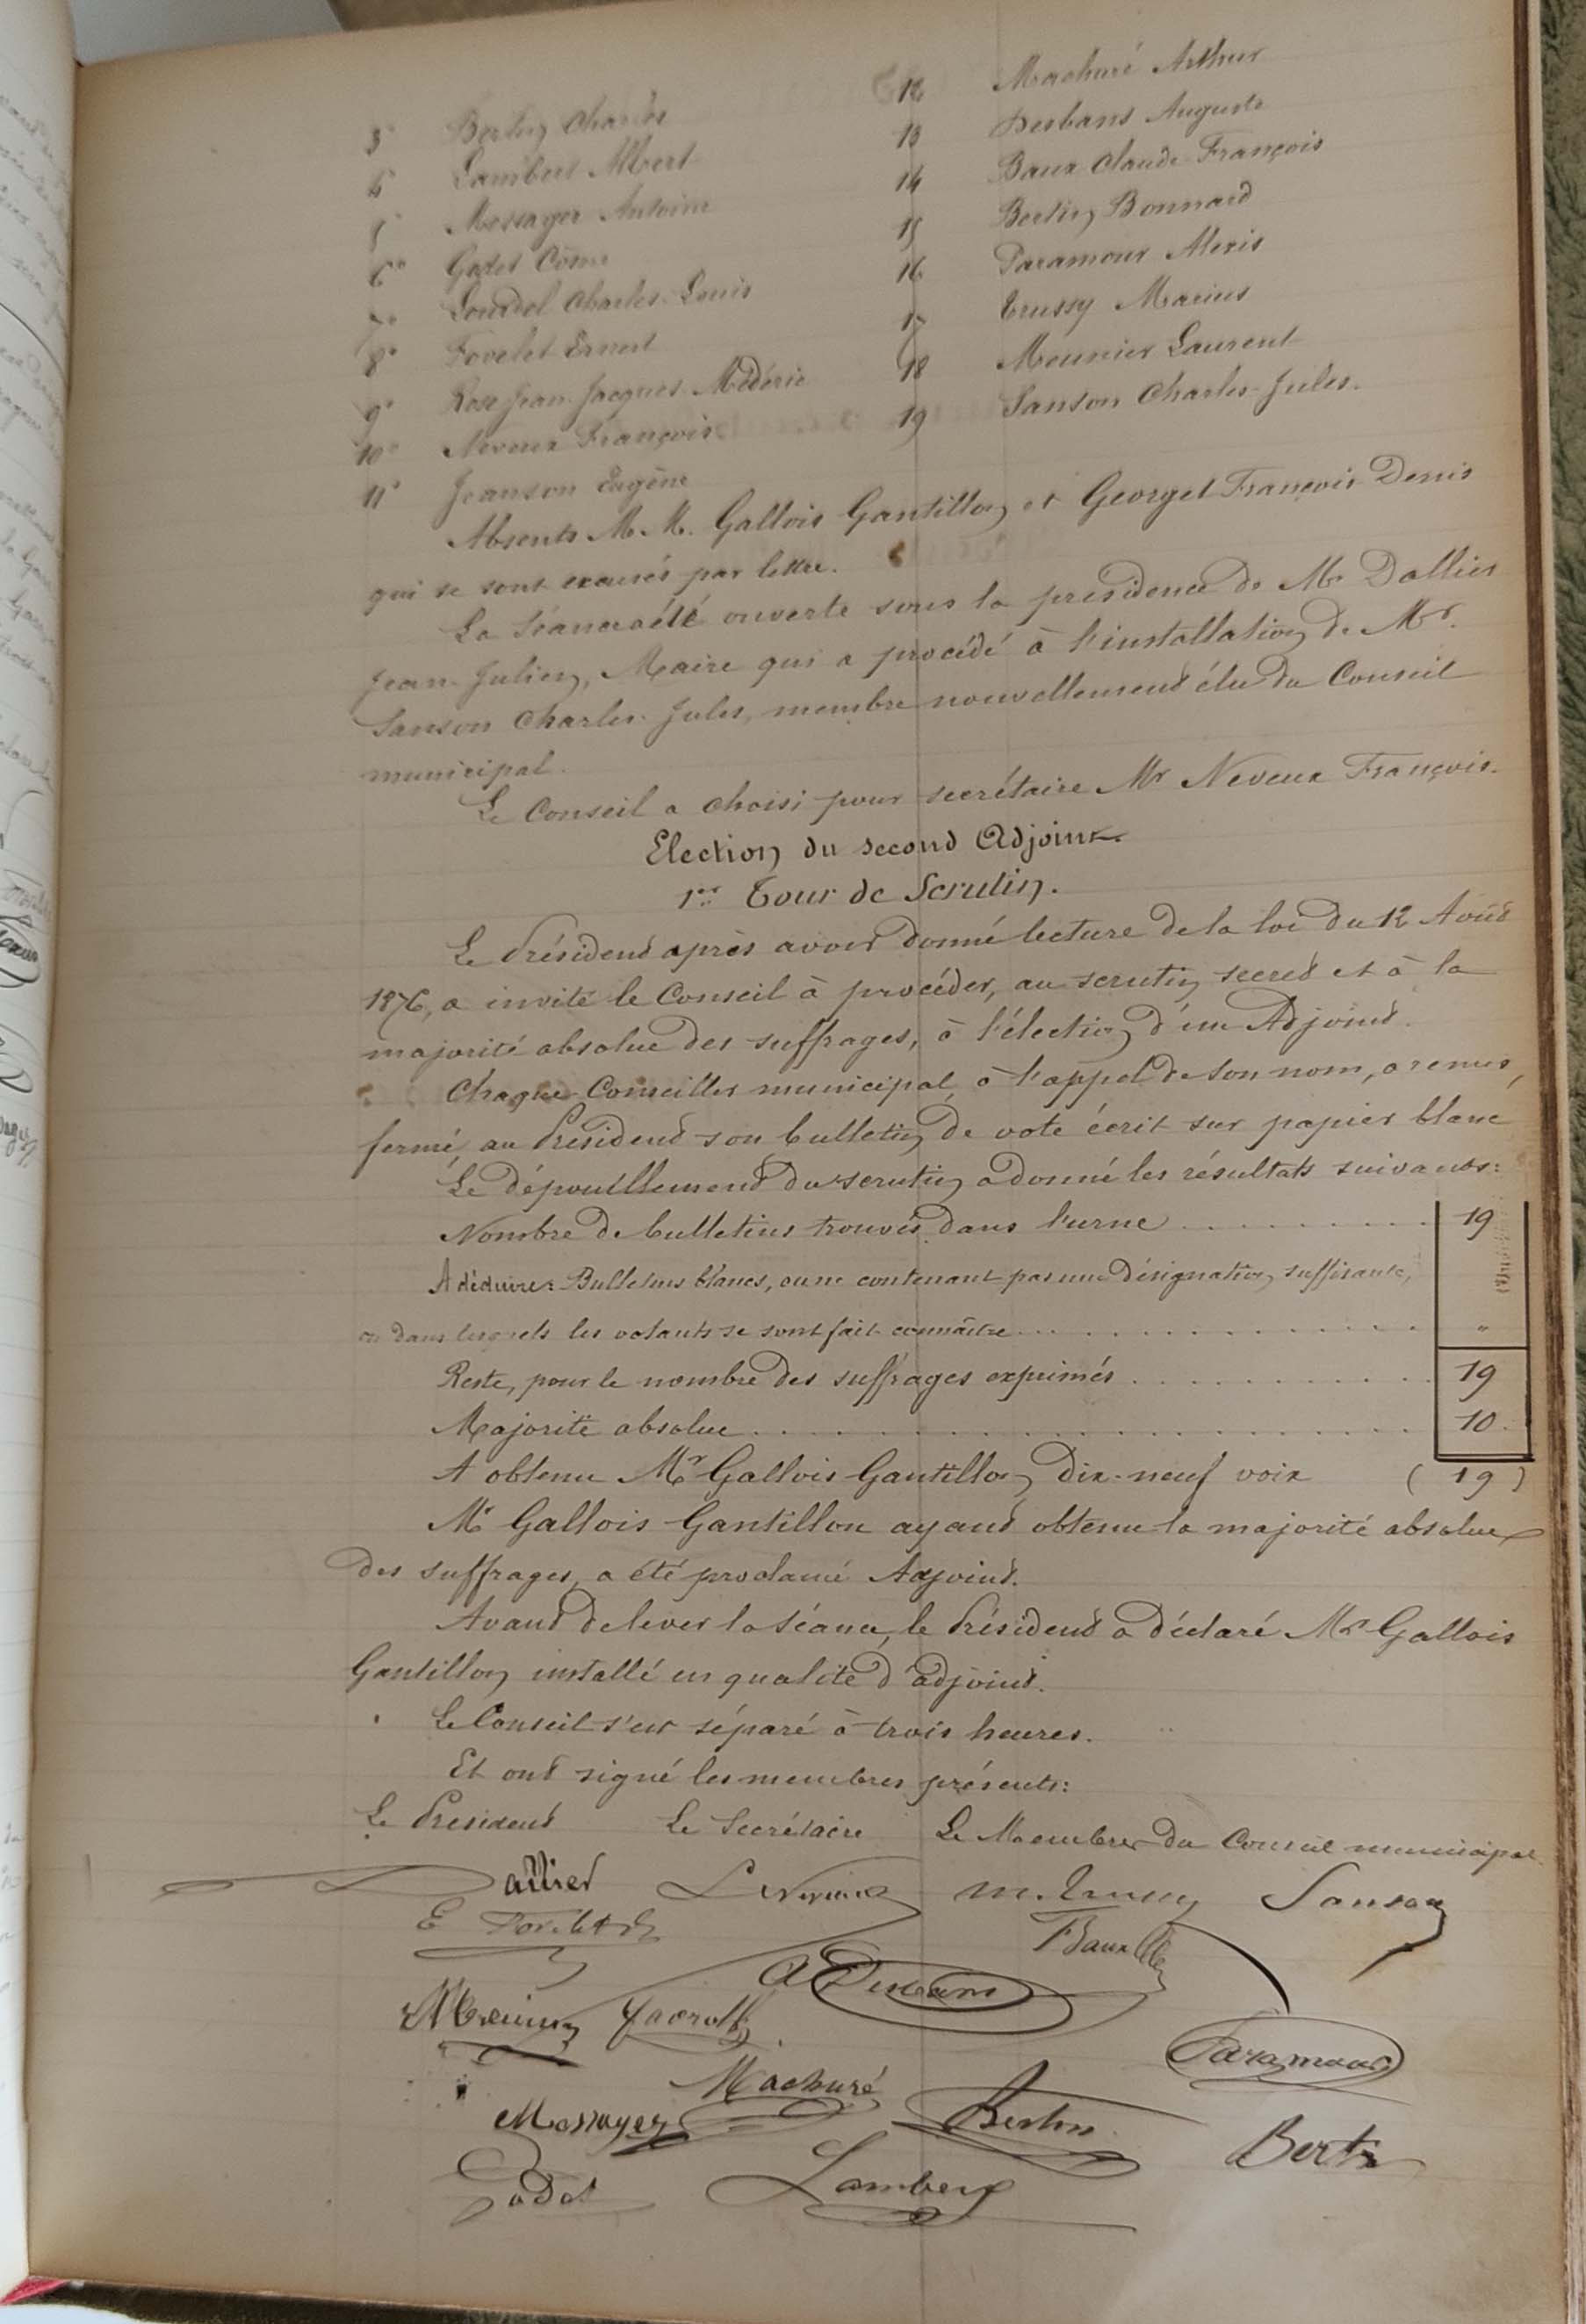 3° Bertin Charles
4° Lambert Albert
5° Messager Antoine
6° Godet Côme
7° Lourdel Charles-Louis
8° Fovelet Ernest
9° Rose Jean-Jacques-Médéric
10° Neveux François
11° Jeanson Eugène
12 Machuré Arthur
13 Desbans Auguste
14 Baux Claude-François
15 Bertin Bonnard
16 Paramour Alexis
17 Trussy Marius
18 Meunier Laurent
19 Sanson Charles-Jules.
Absents M.M. Gallois Gantillon et Georget François-Denis
qui se sont excusés par lettre.
La séance a été ouverte sous la présidence de Mr Dallier
Jean-Julien, Maire qui a procédé à l'installation de Mr.
Sanson Charles-Jules, membre nouvellement élu du Conseil
municipal.
Le Conseil a choisi pour secrétaire Mr Neveux François.
Election du second Adjoint.
1er Tour de Scrutin.
Le Président après avoir donné lecture de la loi du 12 Août
1876, a invité le Conseil à procéder, au scrutin secret et à la
majorité absolue des suffrages, à l'élection d'un Adjoint.
Chaque Conseiller municipal, à l'appel de son nom, a remis,
fermé, au Président son bulletin de vote écrit sur papier blanc
Le dépouillement du scrutin a donné les résultats suivants:
Nombre de bulletins trouvés dans l'urne . . . . . . . . . 19
A déduire: Bulletins blancs, ou ne contenant pas une désignation suffisante,
ou dans lesquels les votants se sont fait connaître . . . . . . . . . "
Reste, pour le nombre des suffrages exprimés . . . . . . . . . 19
Majorité absolue . . . . . . . . . 10
A obtenu Mr Gallois-Gantillon dix-neuf voix ( 19 )
Mr Gallois-Gantillon ayant obtenu la majorité absolue
des suffrages, a été proclamé Adjoint.
Avant de lever la séance, le Président a déclaré Mr Gallois
Gantillon installé en qualité d'adjoint.
Le Conseil s'est séparé à trois heures.
Et ont signé les membres présents:
Le Président Le Secrétaire Le Membres du Conseil municipal
Dallier Neveux M. Trussy Sanson
E Fovelet Baux
A Desbans
Meunier
Paramour
Machuré
Messager Bertin Bertin
Godet Lambert